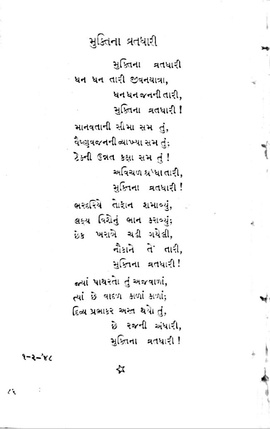 મુક્તિના વ્રતધારી
મુક્તિના વ્રતધારી
ધન ધન તારી જીવનયાત્રા,
ધનધનજનનીતારી,
મુક્તિના વ્રતધારી!
માનવતાની સીમા સમ તું,
વૈષ્ણવજનનીવ્યાખ્યા સમ તું;
ટેકની ઉન્નત કક્ષા સમ તું!
અવિચળ
મુક્તિના વ્રતધારી!
ભરદરિયે તોફાન શમાવ્યું,
લક્ષ્ય વિશ્વનું ભાન કરાવ્યું;
છેક ખરાબે ચડી ગયેલી,
નૌકાને તેં તારી,
મુક્તિના વ્રતધારી!
જ્યાં પાથરતો તું અજવાળાં,
ત્યાં છે વાદળ કાળાં કાળાં;
દિવ્ય પ્રભાકર અસ્ત થયો તું,
છે રજની અંધારી,
મુક્તિના વ્રતધારી!
૧-૩-'૪૮
૮૬